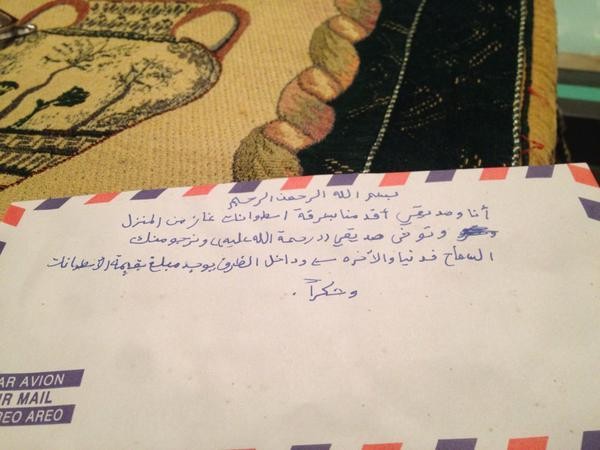 بسم الله الرحمن الرحيم
أنا وصديقي أقدمنا بسرقة اسطوانات غاز من المنزل
وتوفى صديقي (( رحمة الله عليه )) ونرجو منك
السماح فدنيا والآخره وداخل الظرف يوجد مبلغ بقيمة الأسطوانات
وشكراً .
AR AVION
IR MAIL
REO AREO